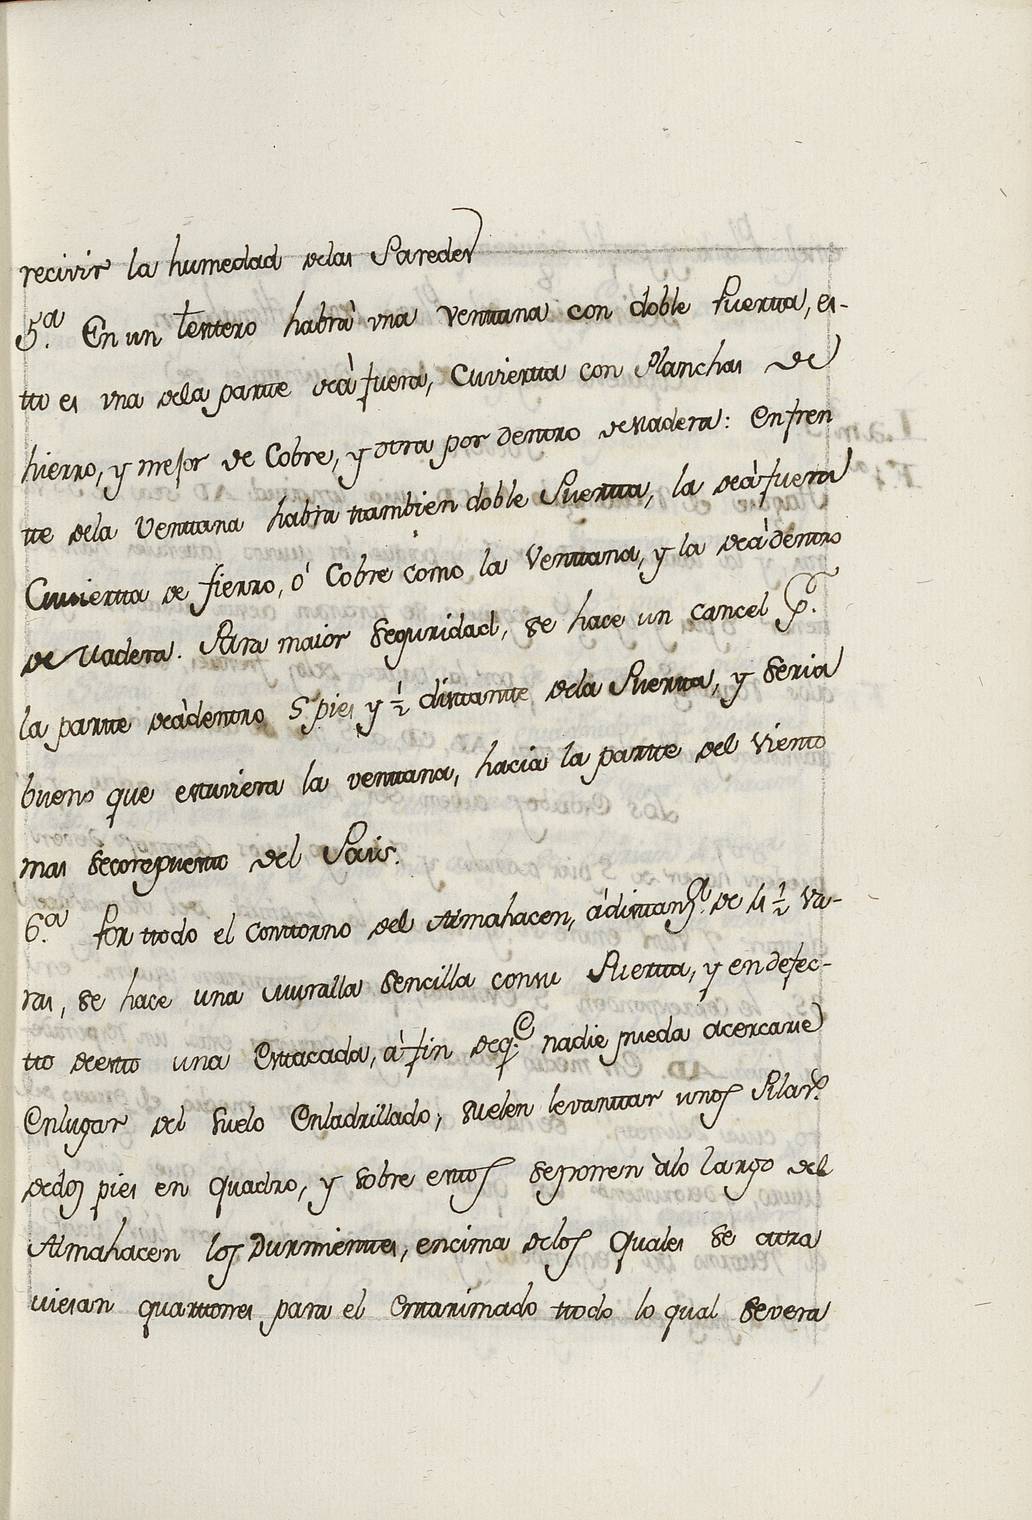 recivir la humedad delas Paredes
5.ª En un testero habrà una Venttana con doble Puertta, es-
tto es una dela partte deàfuera, Cuviertta con Planchas de
hierro, y mejor de Cobre, y otra por dentro de Madera: Enfren
tte dela Venttana habrà ttambien doble Puertta, la deàfuera
Cuviertta de fierro, ó Cobre como la Venttana, y la deàdentro
de Madera. Para maior seguridad, se hace un cancel p.r
la partte deàdentro 5 pies y ½ disttantte dela Puertta, y seria
bueno que estuviera la venttana, hacia la partte del Viento
mas secorepuesto del Pais.
6.ª Por ttodo el conttorno del Almahacen, àdisttanz.ª de 4 ½ Va-
ras, se hace una muralla sencilla consu Puertta, y en defec-
tto deesto una Esttacada, à fin deq.e nadie pueda acercarse
Enlugar del suelo Enladrillado, suelen levanttar unos Pilar.s
dedos pies en quadro, y sobre esttos seponen àlo largo del
Almahacen los Durmienttes, encima delos quales se attra
viesan quarttones para el Enttarimado ttodo lo qual severa